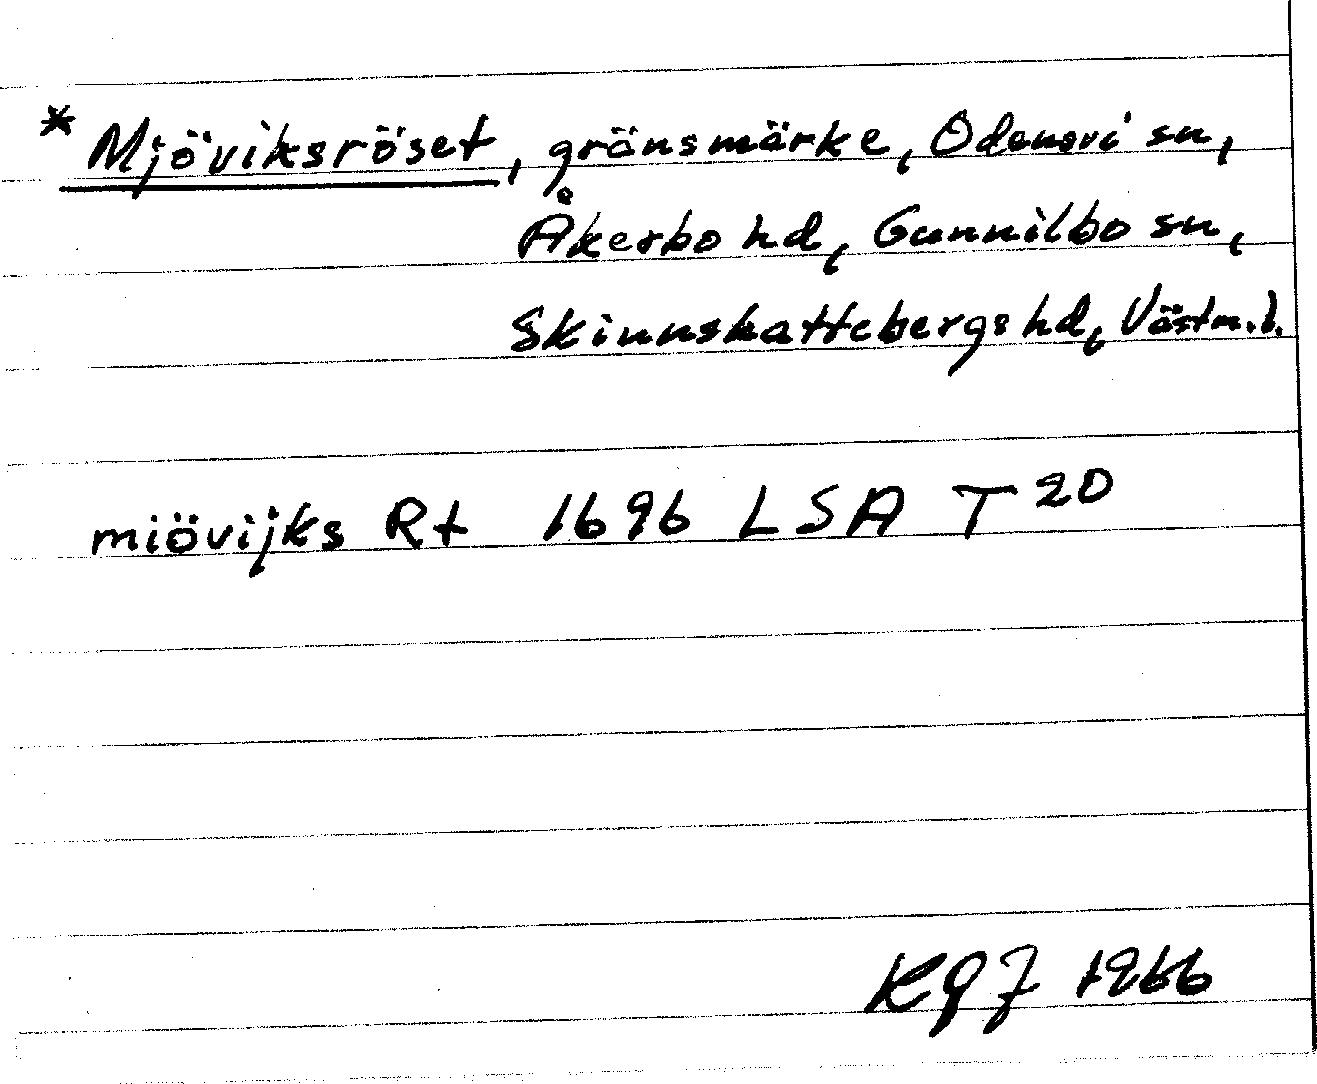 * Mjöviksröset, gränsmärke, Odensvi sn,
Åkerbo hd, Gunnilbo sn,
Skinnskattebergs hd, Västm.l.
miövijks Rt 1696 LSA T 20
KGJ 1966